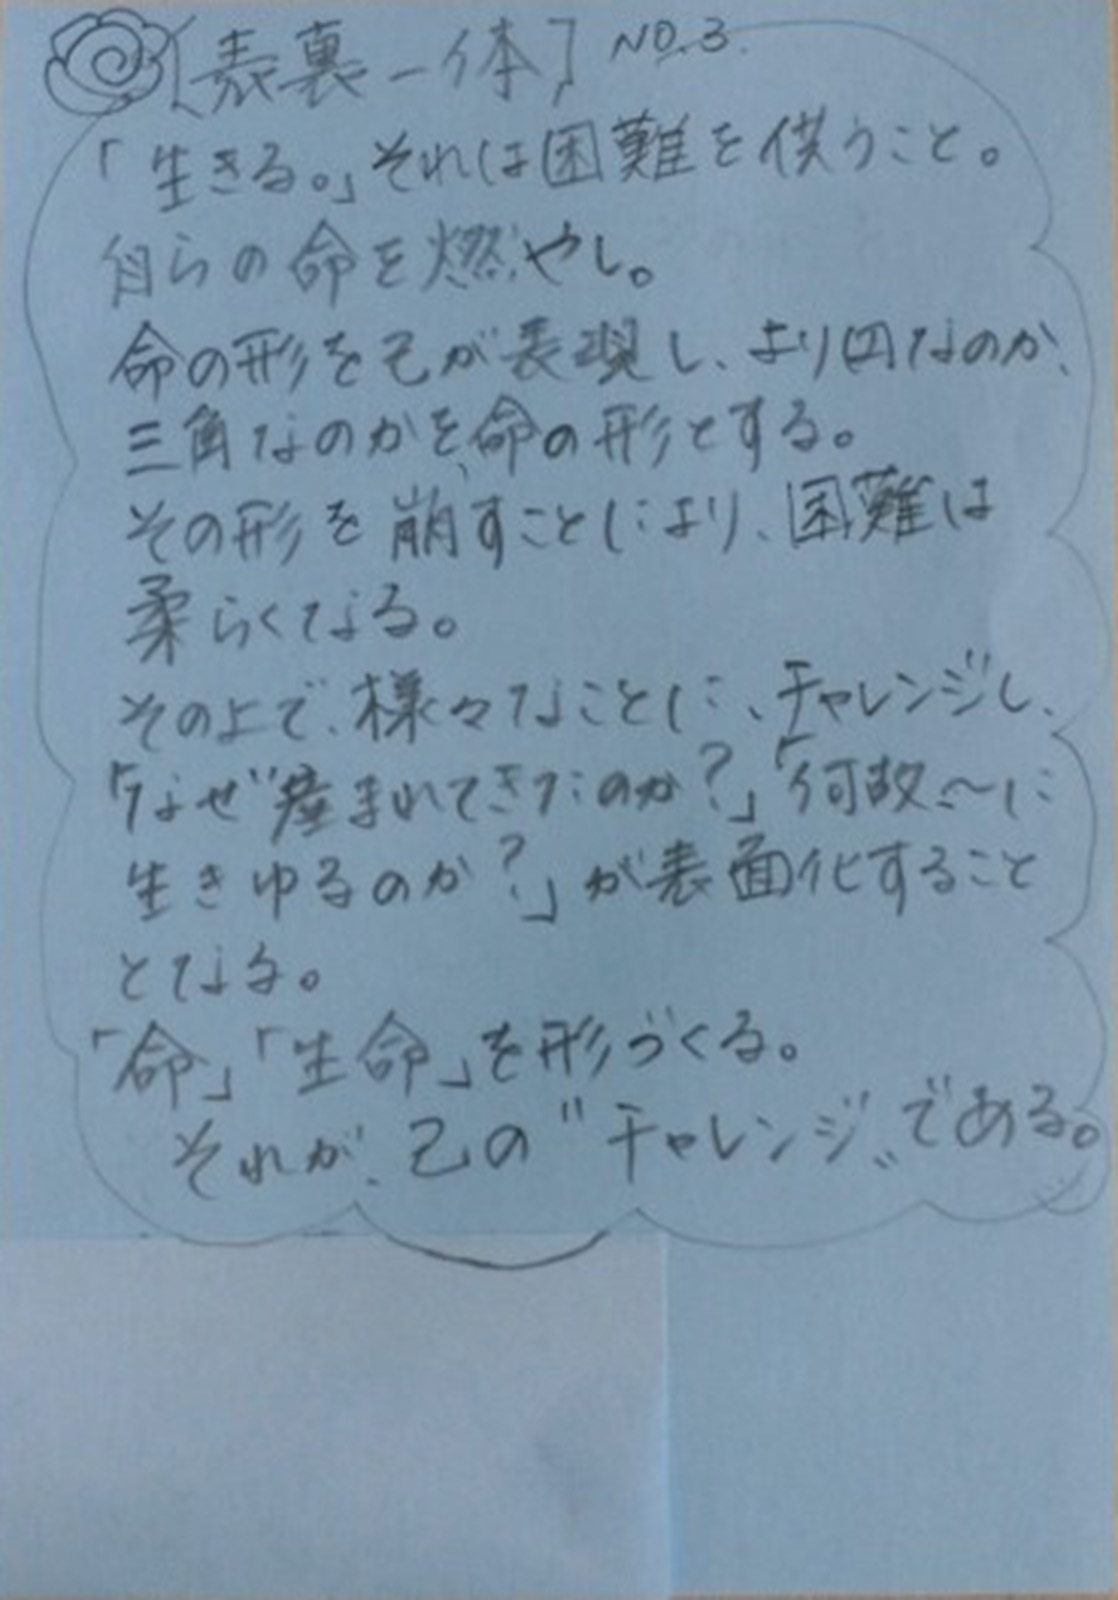 [表裏一体] NO.3.
「生きる。」それは困難を供うこと。
自らの命を燃やし。
命の形を己が表現し、より凹なのか、
三角なのかを、命の形とする。
その形を崩すことにより、困難は
柔らくなる。
その上で、様々なことに、チャレンジし、
「なぜ産まれてきたのか?」「何故〜に
生きゆるのか?」が表面化すること
となる。
「命」「生命」を形づくる。
それが、己の〝チャレンジ〟である。